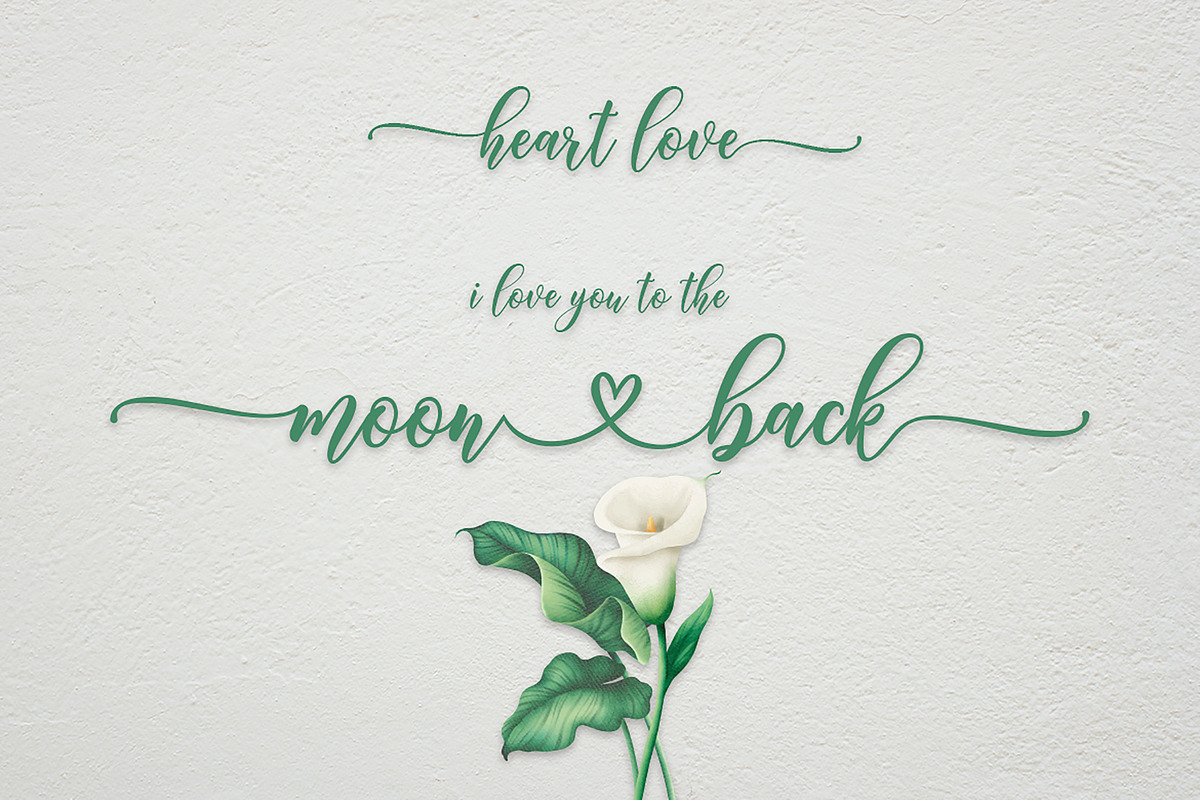 heart love
i love you to the
moon back